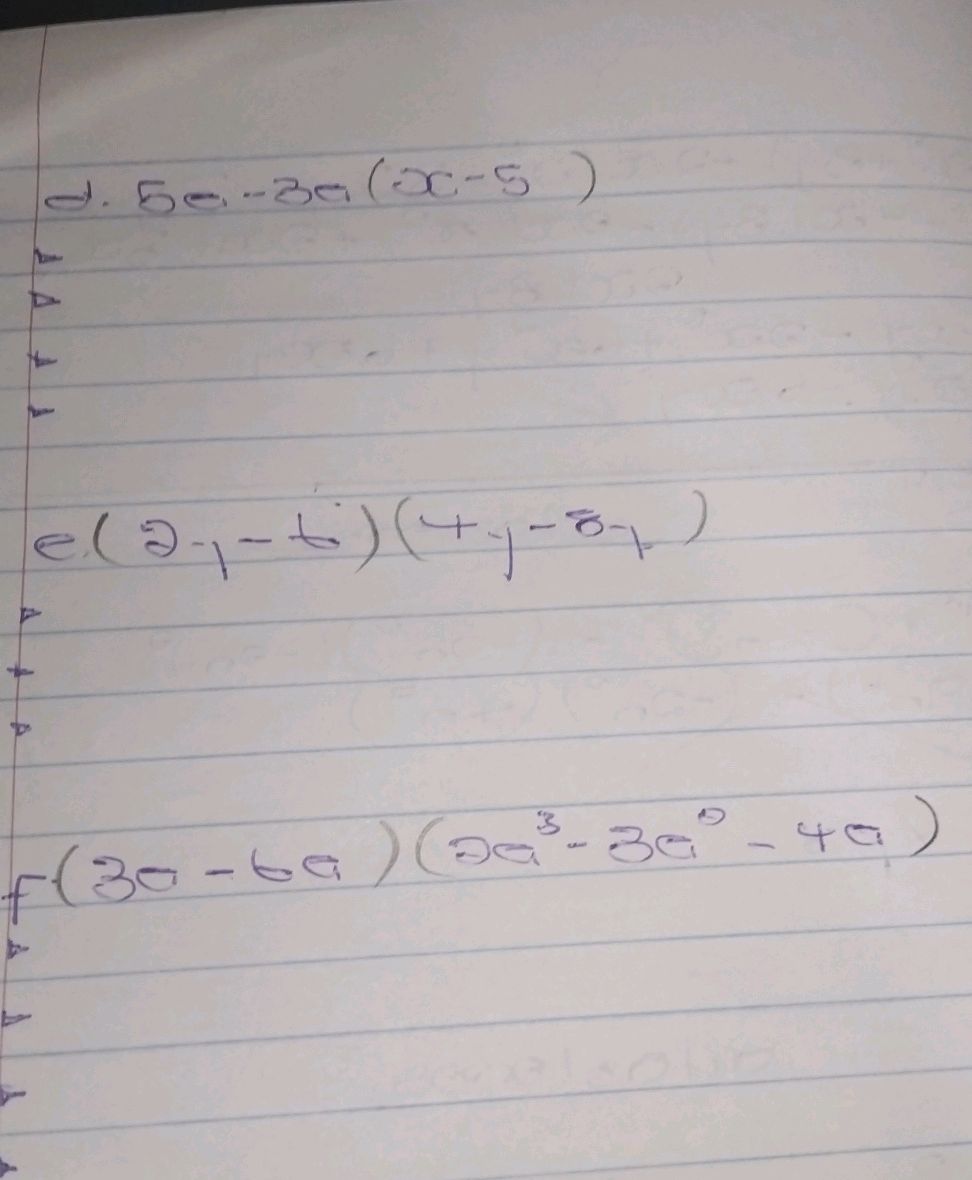 d. 5a - 3a (x - 5 )
e. ( 2y - 6 ) ( 4y - 5y )
f. ( 3a - 6a ) ( 2a³ - 3a² - 4a )